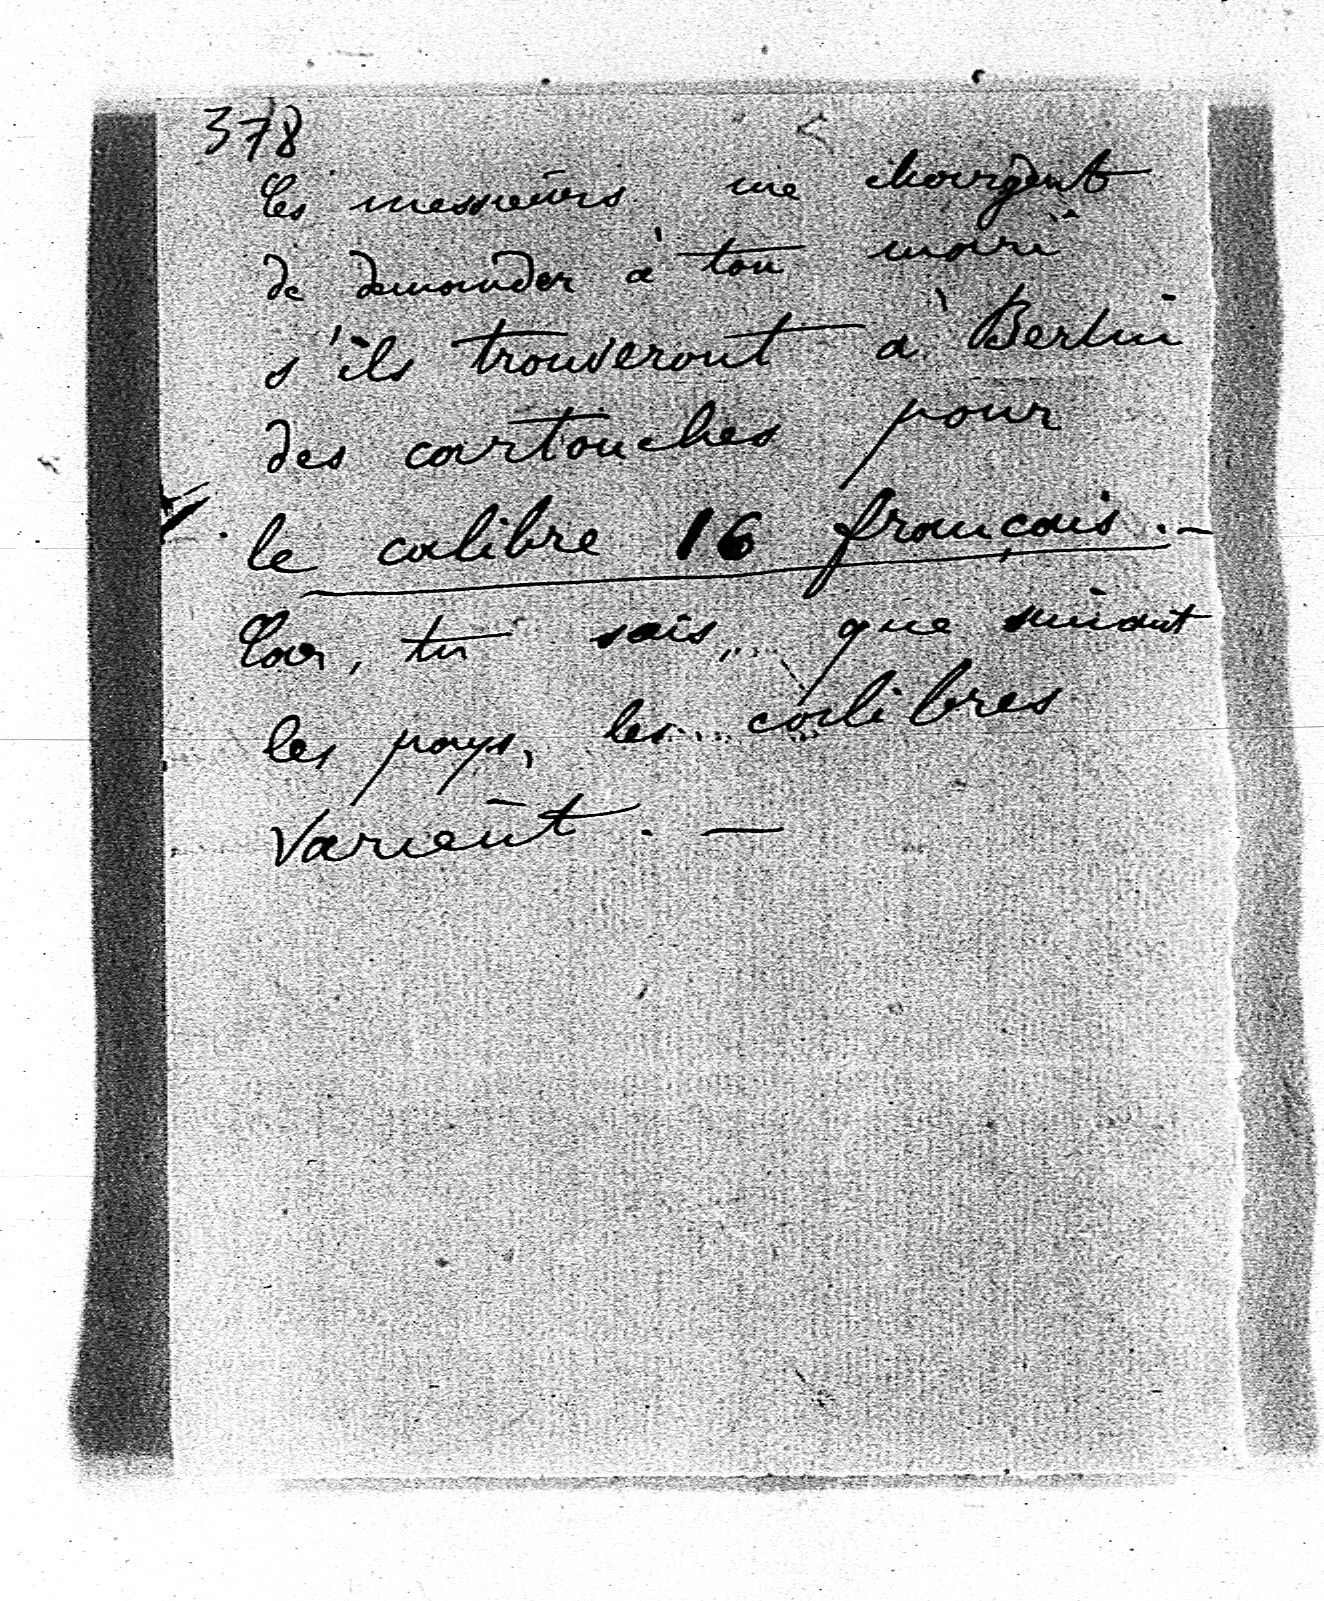 378
Ces messieurs me chargent
de demander à ton mari
s'ils trouveront à Berlin
des cartouches pour
le calibre 16 français. —
Car, tu sais, que suivant
les pays, les calibres
varient. —